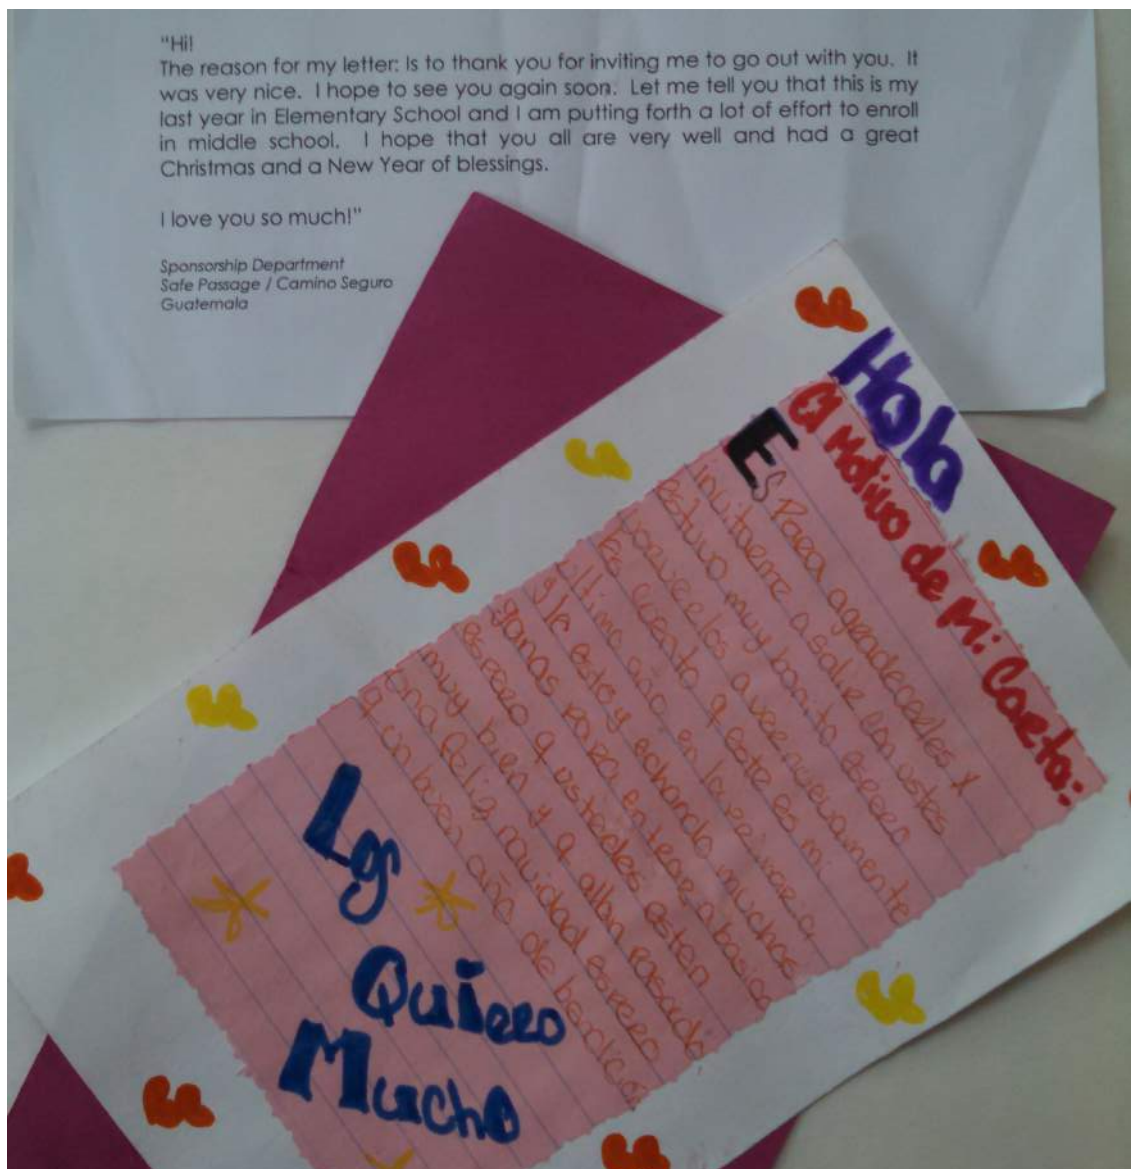 "Hi!
The reason for my letter: Is to thank you for inviting me to go out with you. It
was very nice. I hope to see you again soon. Let me tell you that this is my
last year in Elementary School and I am putting forth a lot of effort to enroll
in middle school. I hope that you all are very well and had a great
Christmas and a New Year of blessings.
I love you so much!"
Sponsorship Department
Safe Passage / Camino Seguro
Guatemala
Hola
El Motivo de Mi Carta:
Es Para agradecerles y
invitarme a salir con ustes
estuvo muy bonito espero
volverlos a ver nuevamente
les cuento q este es mi
ultimo año en la primaria
y le estoy echando muchas
ganas para entrar a basico
espero q ustedes esten
muy bien y q allan pasado
una feliz navidad espero
q un buen año de bendicios
Los
Quiero
Mucho